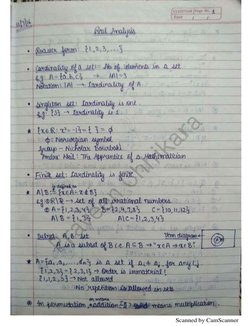 Real Analysis
• Roaster form: {1,2,3,...}
• Cardinality of a set: No. of elements in a set
eg: A={a,b,c} → |A|=3
Notation: |A| → Cardinality of A
• Singleton set: Cardinality is one
eg: {3} → Cardinality is 1
φ: Norwegian symbol
Group - Nicholas Bourbaki
Andre Weil: The Apprentice of a Mathematician
• Finite set: Cardinality is finite
eg: R\Q → set of all irrational numbers
A={1,2,3,4} B={2,4,7,8} C={10,11,12}
A\B = {1,3} A\C = {1,2,3,4}
• Subset A, B set
Venn diagram
A is a subset of B i.e. A⊆B → "x∈A ⇒ x∈B".
{1,2,3} = {2,1,3} → Order is immaterial
{1,1,2,3} → Not allowed
No repetition is allowed in sets
In permutation, means multiplication.
Scanned by CamScanner